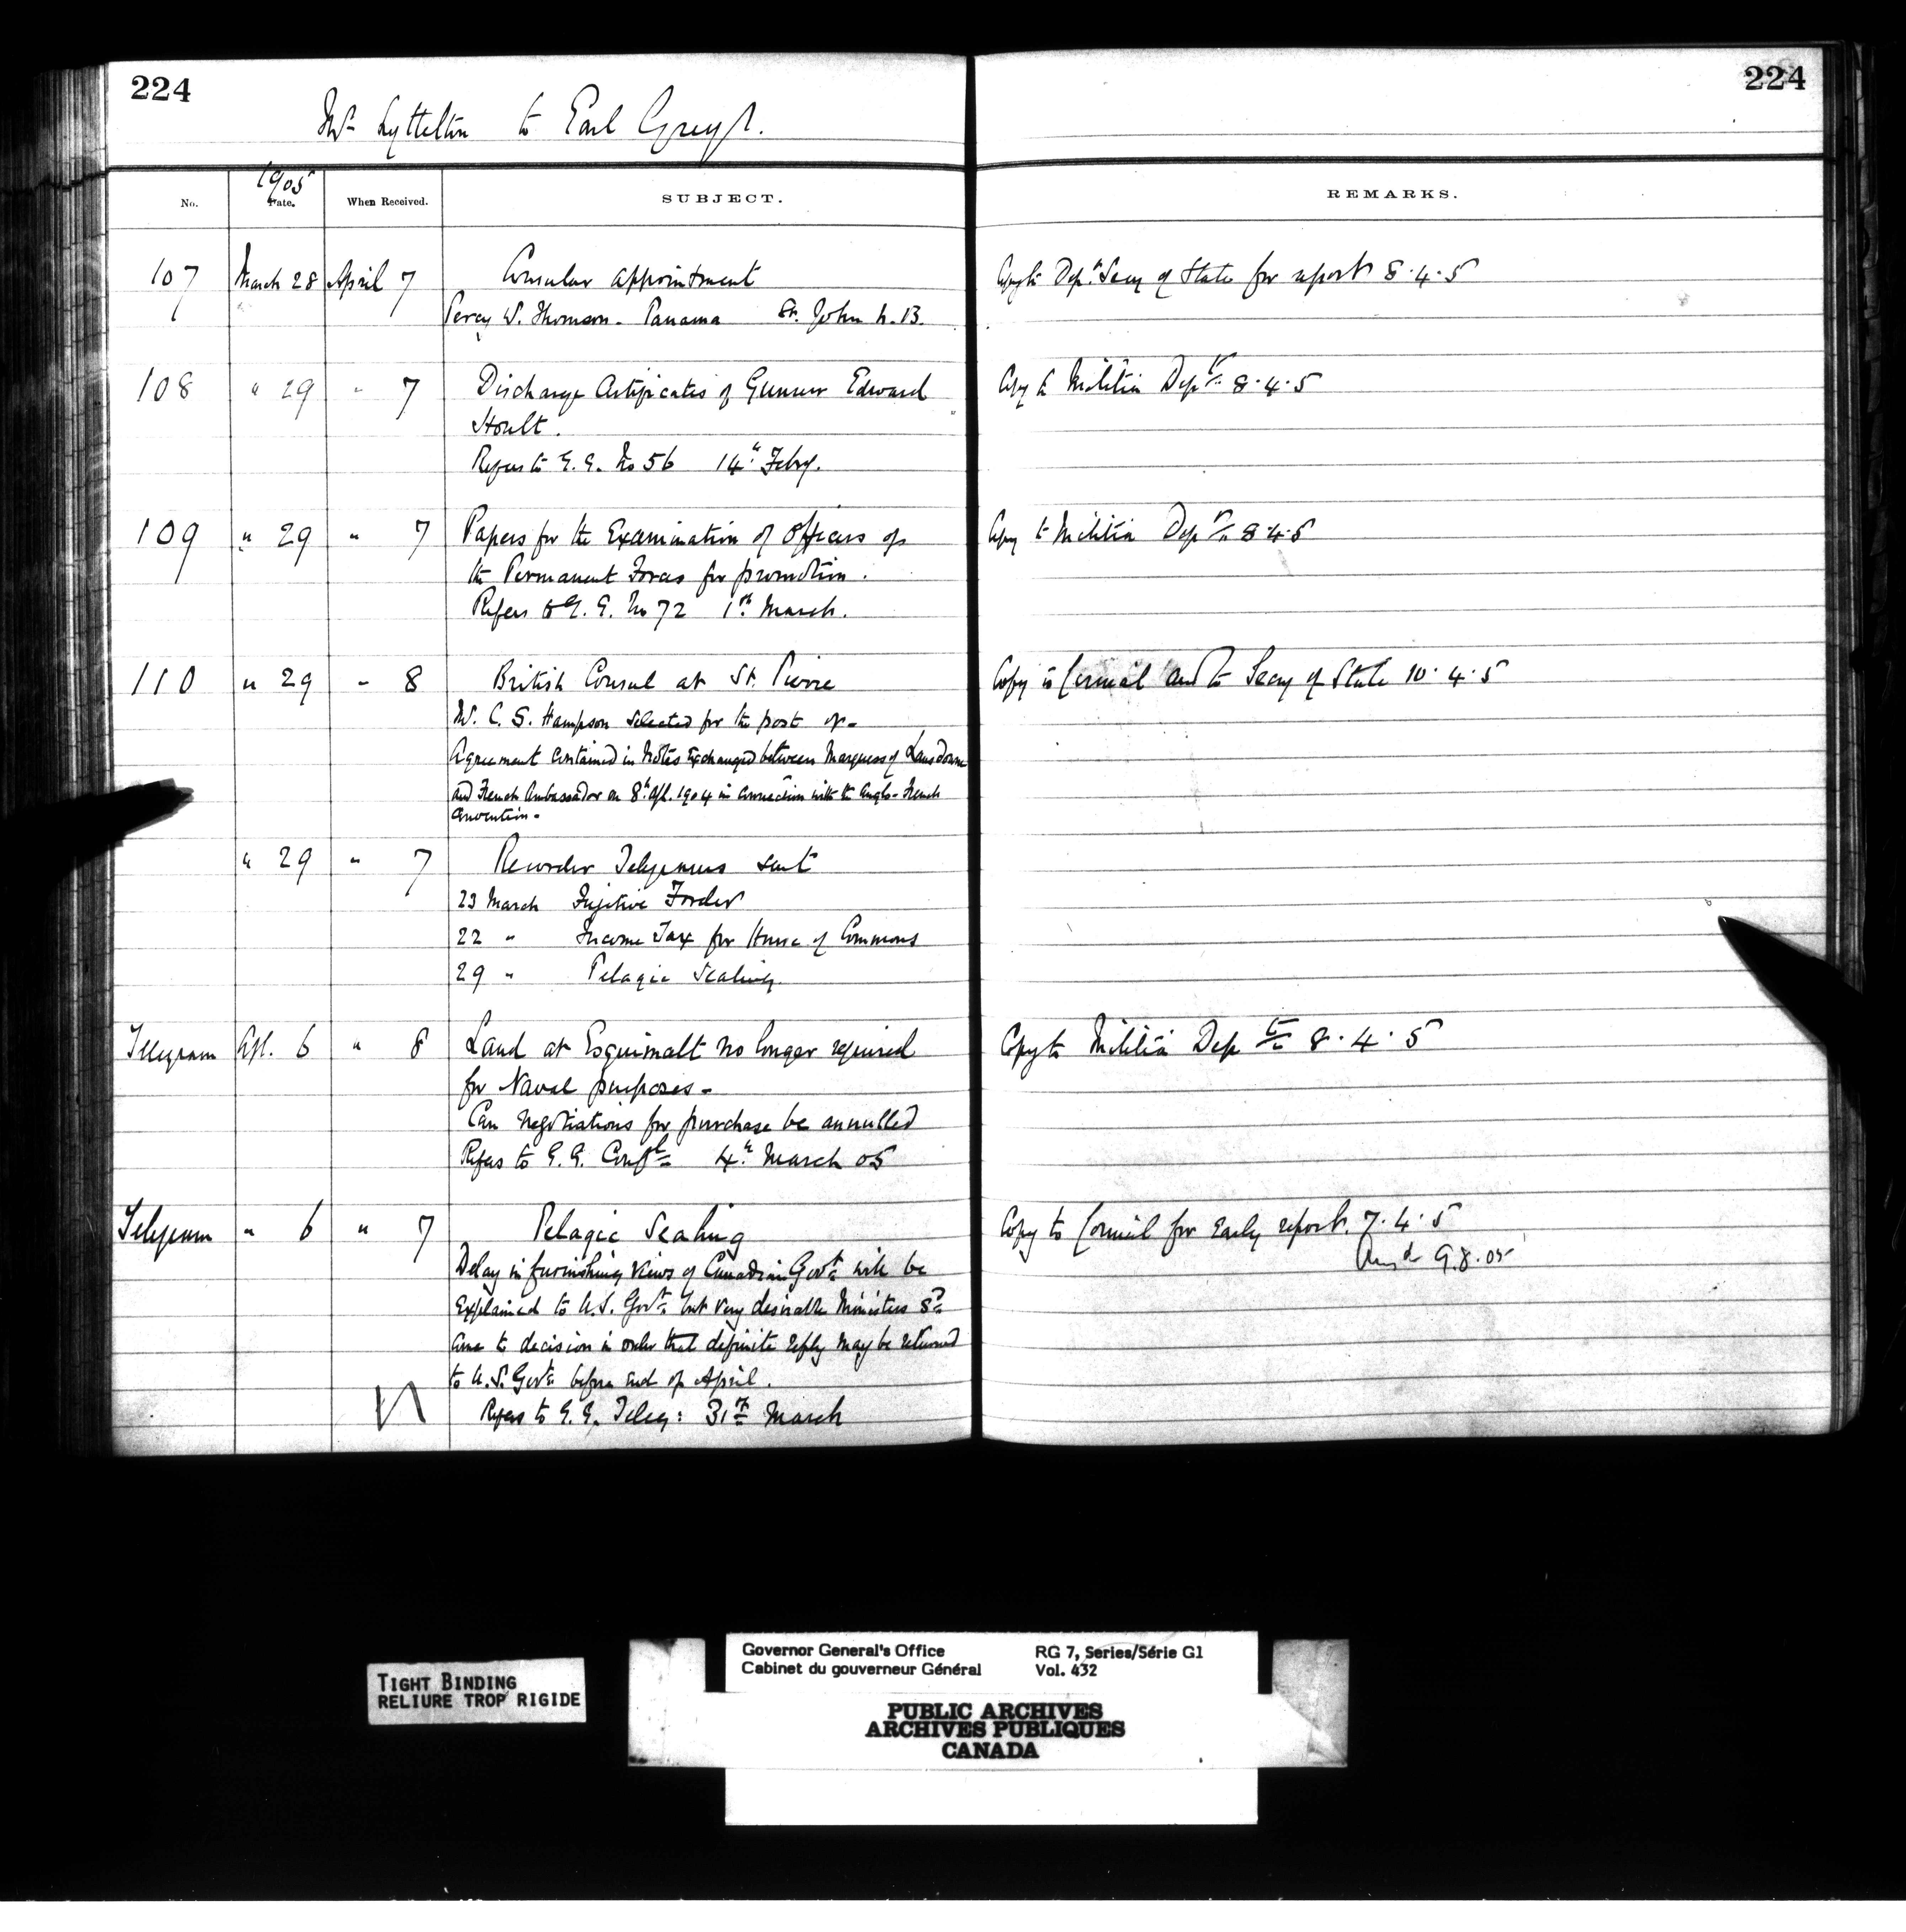 224
224
Mr. Lyttelton to Earl Grey
1905
No.
Date.
When Received.
SUBJECT.
REMARKS.
107 March 28 April 7 Consular appointment
Copy to Dept. Secy of State for report 8.4.5
Percy W. Thomson - Panama St. John N.B.
108 " 29 " 7 Discharge Certificates of Gunner Edward
Copy to Militia Dept 8.4.5
Hoult.
Refers to G.G. No 56 14th Feby.
109 " 29 " 7 Papers for the Examination of Officers of
Copy to Militia Dept 8.4.5
the Permanent Forces for promotion.
Refers to G.G. No 72 1st March.
110 " 29 " 8 British Consul at St. Pierre
Copy to Council and to Secy of State 10.4.5
Mr. C. S. Hampson selected for the post of -
Agreement contained in Notes Exchanged between Marquess of Lansdowne
and French Ambassador on 8th Apl. 1904 in connection with the Anglo-French
Convention -
" 29 " 7 Recorder Telegrams sent
23 March Fugitive Forder
22 " Income Tax for House of Commons
29 " Pelagic Sealing
Telegram Apl. 6 " 8 Land at Esquimalt no longer required
Copy to Militia Dept 8.4.5
for Naval purposes -
Can negotiations for purchase be annulled
Refers to G.G. Confl 4th March 05
Telegram " 6 " 7 Pelagic Sealing
Copy to Council for early report. 7.4.5
Delay in furnishing views of Canadian Govt will be
Ansd 9.8.05
Explained to U.S. Govt but very desirable Ministers sd
come to decision in order that definite reply may be returned
to U.S. Govt before end of April.
Refers to G.G. Teleg: 31st March
TIGHT BINDING
RELIURE TROP RIGIDE
Governor General's Office
Cabinet du gouverneur Général
RG 7, Series/Série G1
Vol. 432
PUBLIC ARCHIVES
ARCHIVES PUBLIQUES
CANADA